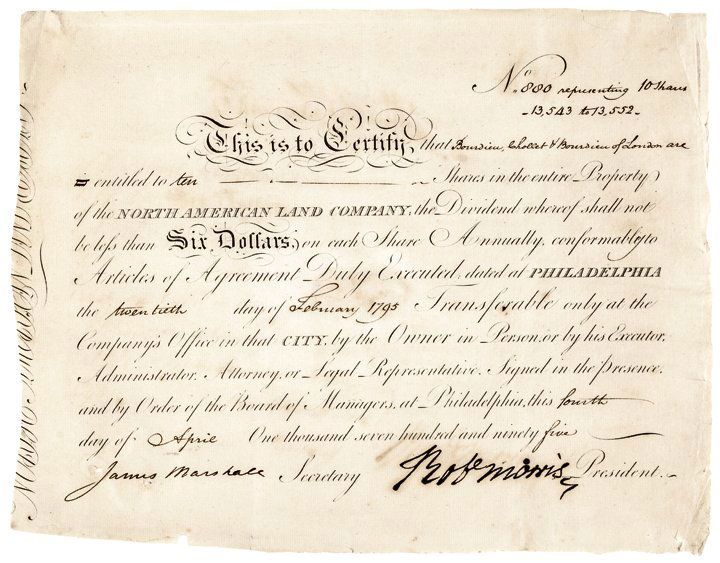 No. 880 representing 10 Shares
- 13,543 to 13,552 -
This is to Certify, that Bourdieu, Chollet & Bourdieu of London are
entitled to ten Shares in the entire Property
of the NORTH AMERICAN LAND COMPANY, the Dividend whereof shall not
be less than Six Dollars, on each Share Annually, conformably to
Articles of Agreement Duly Executed, dated at PHILADELPHIA
the twentieth day of February 1795 Transferable only at the
Company's Office in that CITY, by the Owner in Person, or by his Executor,
Administrator, Attorney, or Legal Representative. Signed in the presence,
and by Order of the Board of Managers, at Philadelphia, this fourth
day of April One thousand seven hundred and ninety five
James Marshall Secretary Robt Morris President.